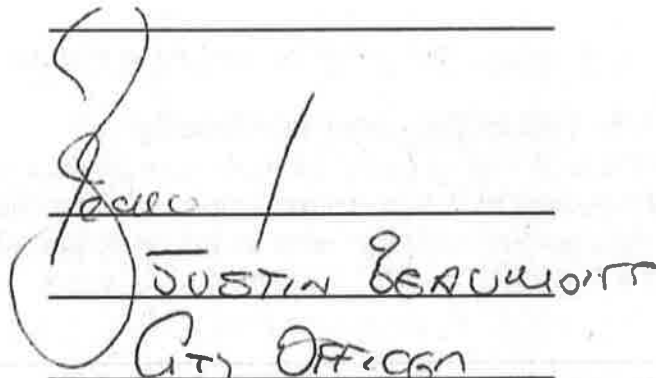 JUSTIN BEAUMONT
City OFFICER